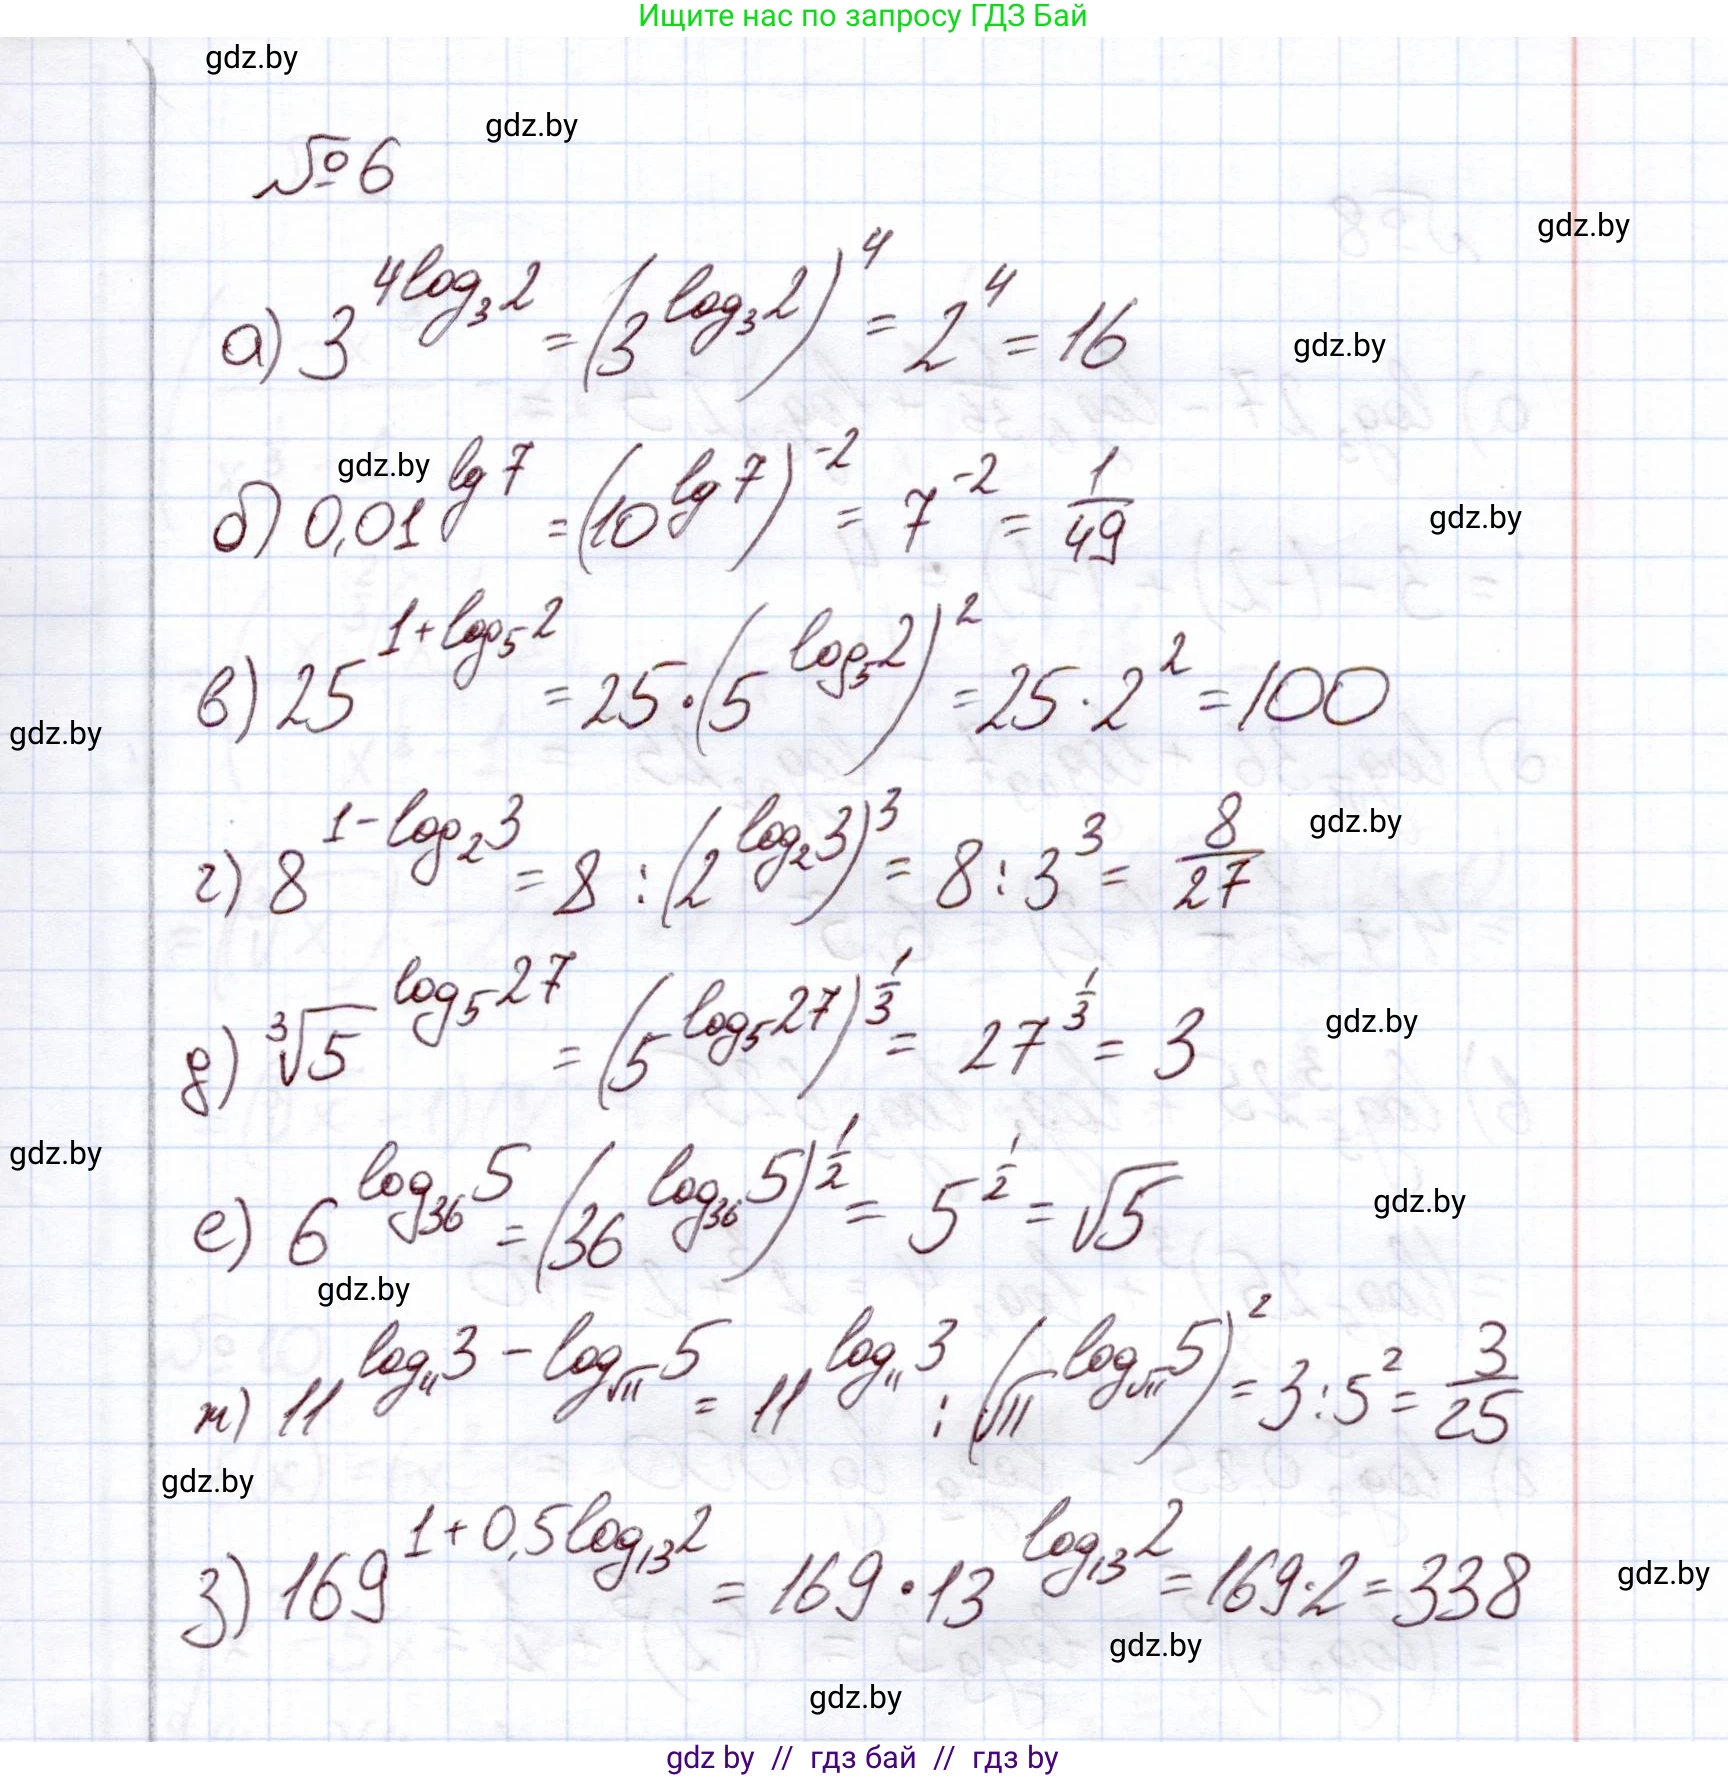 Ищите нас по запросу ГДЗ Бай
gdz.by
gdz.by
№6
gdz.by
а) 3^{4log_3 2} = (3^{log_3 2})^4 = 2^4 = 16
gdz.by
gdz.by
б) 0,01^{lg 7} = (10^{lg 7})^{-2} = 7^{-2} = 1/49
gdz.by
в) 25^{1+log_5 2} = 25·(5^{log_5 2})^2 = 25·2^2 = 100
gdz.by
г) 8^{1-log_2 3} = 8 : (2^{log_2 3})^3 = 8 : 3^3 = 8/27
gdz.by
д) ∛5^{log_5 27} = (5^{log_5 27})^{1/3} = 27^{1/3} = 3
gdz.by
gdz.by
е) 6^{log_36 5} = (36^{log_36 5})^{1/2} = 5^{1/2} = √5
gdz.by
gdz.by
ж) 11^{log_11 3 - log_√11 5} = 11^{log_11 3} : (√11^{log_√11 5})^2 = 3 : 5^2 = 3/25
gdz.by
з) 169^{1+0,5log_13 2} = 169·13^{log_13 2} = 169·2 = 338
gdz.by
gdz.by
gdz.by
gdz by // гдз бай // гдз by